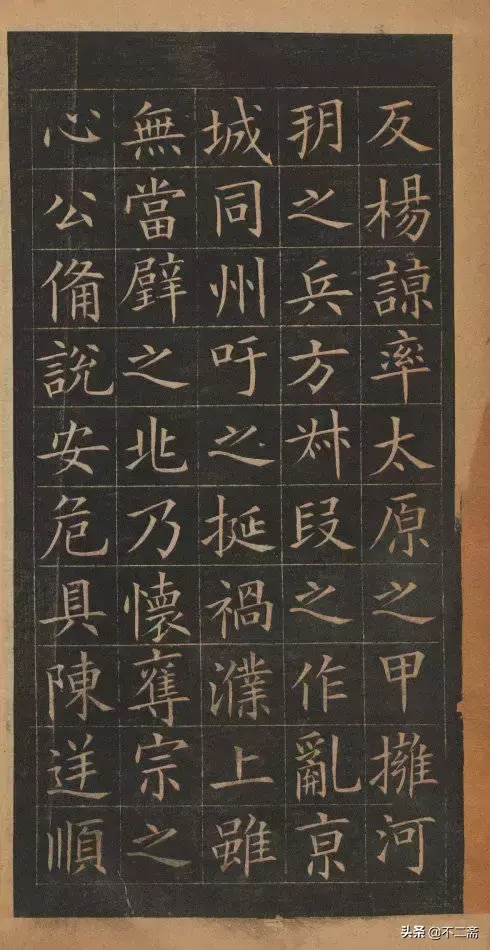 反楊諒率太原之甲擁河
朔之兵方叔段之作亂京
城同州吁之挺禍濮上雖
無當璧之兆乃懷奪宗之
心公備說安危具陳逆順
头条 @不二斋